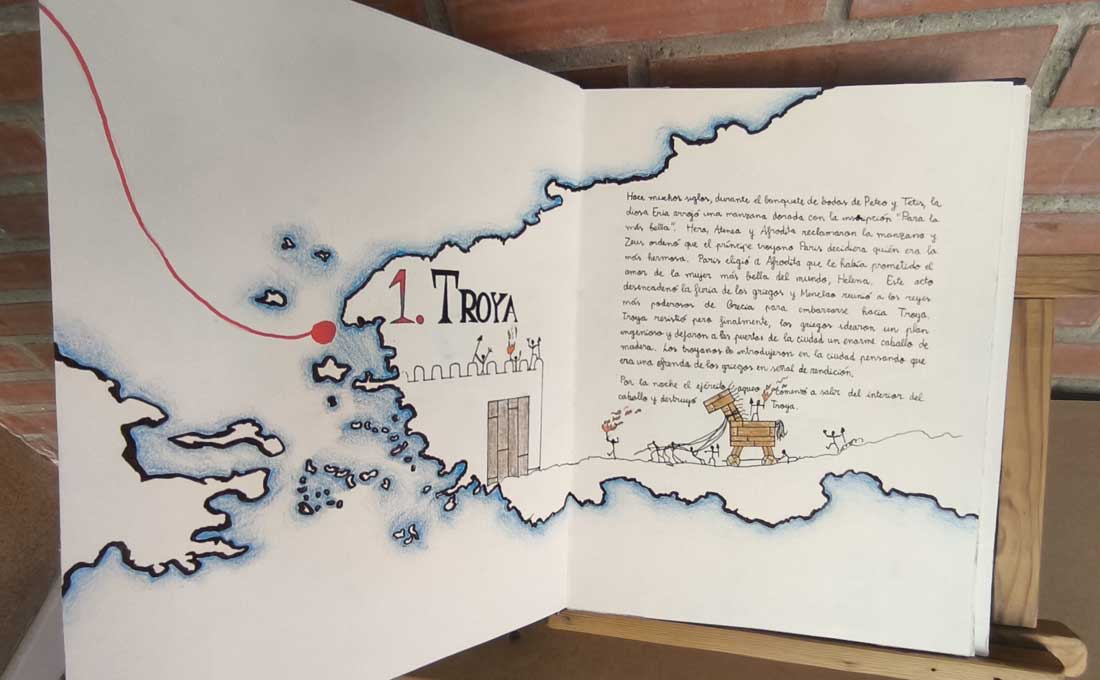 1. TROYA
Hace muchos siglos, durante el banquete de bodas de Peleo y Tetis, la
diosa Eris arrojó una manzana dorada con la inscripción "Para la
más bella". Hera, Atenea y Afrodita reclamaron la manzana y
Zeus ordenó que el príncipe troyano Paris decidiera quién era la
más hermosa. Paris eligió a Afrodita que le había prometido el
amor de la mujer más bella del mundo, Helena. Este acto
desencadenó la furia de los griegos y Menelao reunió a los reyes
más poderosos de Grecia para embarcarse hacia Troya.
Troya resistió pero finalmente, los griegos idearon un plan
ingenioso y dejaron a las puertas de la ciudad un enorme caballo de
madera. Los troyanos lo introdujeron en la ciudad pensando que
era una ofrenda de los griegos en señal de rendición.
Por la noche el ejército aqueo comenzó a salir del interior del
caballo y destruyó Troya.